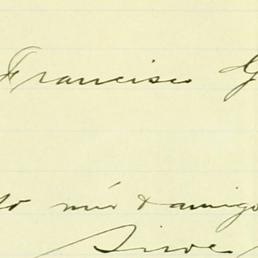 Francisco G
to mío & amigo
Sirve